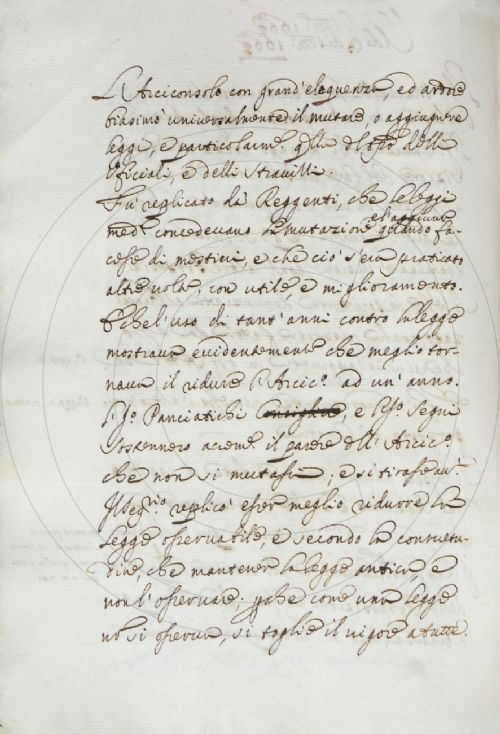 L'Arciconsolo con grand'eloquenza, ed ardore
biasimò universalmente il mutare, o aggiugnere
leggi, e particolarmte. qlle del tpo delli
Ofiziali, e delli Stravizzi.
Fù replicato da Reggenti, che le leggi
medme concedevano la mutazione e l'aggiunta quando fa-
cesse di mestieri, e che ciò s'era praticato
altre volte, con utile, e miglioramento.
E che l'uso di tant'anni contro la legge
mostrava evidentemente che meglio tor-
nava il ridurre l'Arcico. ad un'anno.
Panciatichi Consiglia, e Segni
sostennero il parere dell'Arcico.
che non si mutasse; e si tirasse av.
Il Seg.rio replicò esser meglio ridurre la
legge osservabile, e secondo la consuetu-
dine, che mantener la legge antica, e
non l'osservare. pche come una legge
no si osserva, si toglie il vigore a tutte.